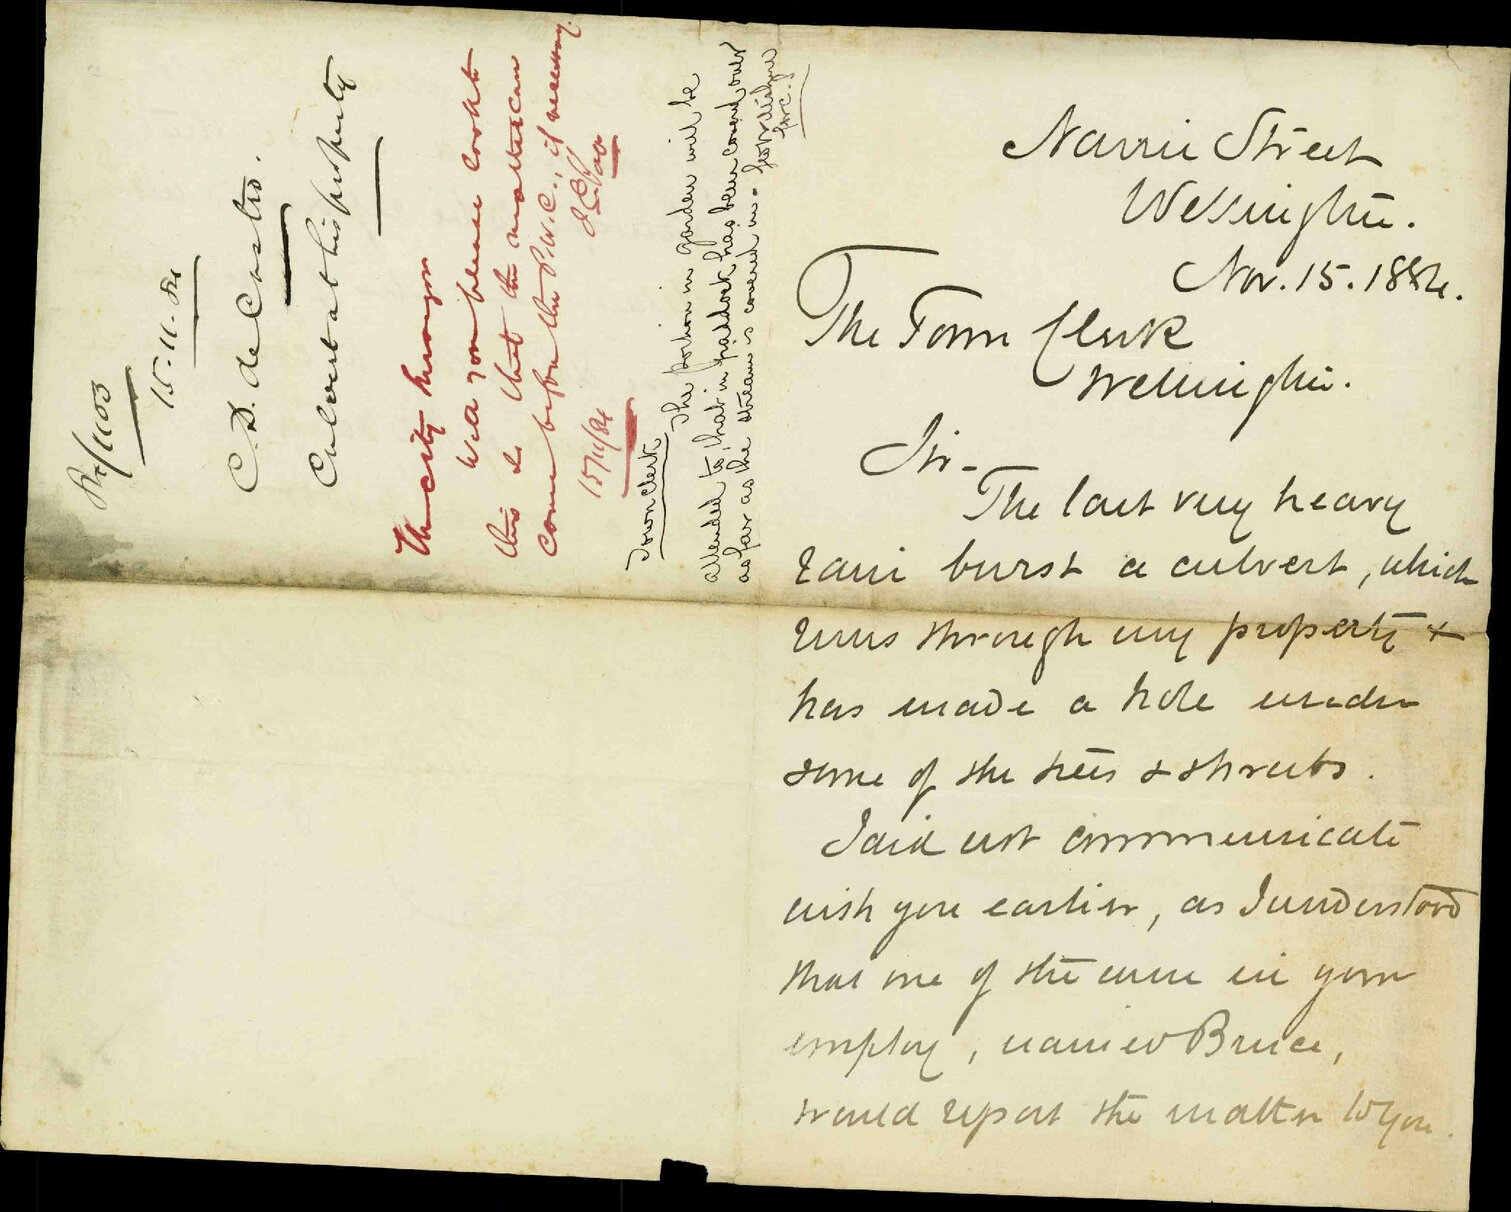 Nairn Street
Wellington.
Nov. 15. 1884.
The Town Clerk
Wellington.
Sir -
The last very heavy
rain burst a culvert, which
runs through my property &
has made a hole under
some of the trees & shrubs.
I did not communicate
with you earlier, as I understood
that one of the men in your
employ, named Bruce,
would report the matter to you.
1103
15-11-84
C. D. de Castro.
Culvert at his property
The City Surveyor
Will you please look at
this & that the matter can
come before the P.W.C., if necessary.
15/11/84
Town Clerk
The portion in garden will be
attended to, that in paddock has been covered over
as far as the stream is covered in -